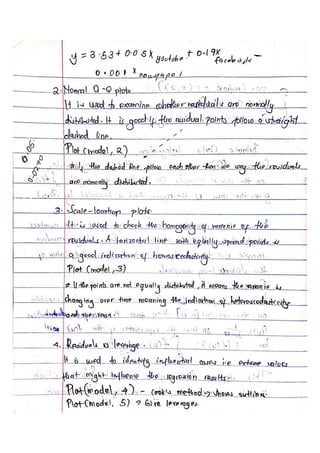 y = 3.53 + 0.05X youtube + 0.19X facebook –
0.001X newspaper
2. Normal Q-Q plots
It is used to examine whether residuals are normally
distributed. It is good if the residual points follow a straight
dashed line.
Plot (model, 2)
* If the dashed line follow each other then we say the residuals
are normally distributed.
3. Scale-location plots
It is used to check the homogeneity of variance of the
residuals. A horizontal line with equally spread points is
a good indication of homoscedasticity
Plot (model, 3)
* If the points are not equally distributed, it means the variance is
changing over time meaning the indication of heteroscedasticity
4. Residuals vs leverage
It is used to identify influential cases i.e extreme values
that might influence the regression results
Plot (model, 4) - cook's method → shows outliers
Plot (model, 5) → Give leverages
0.05